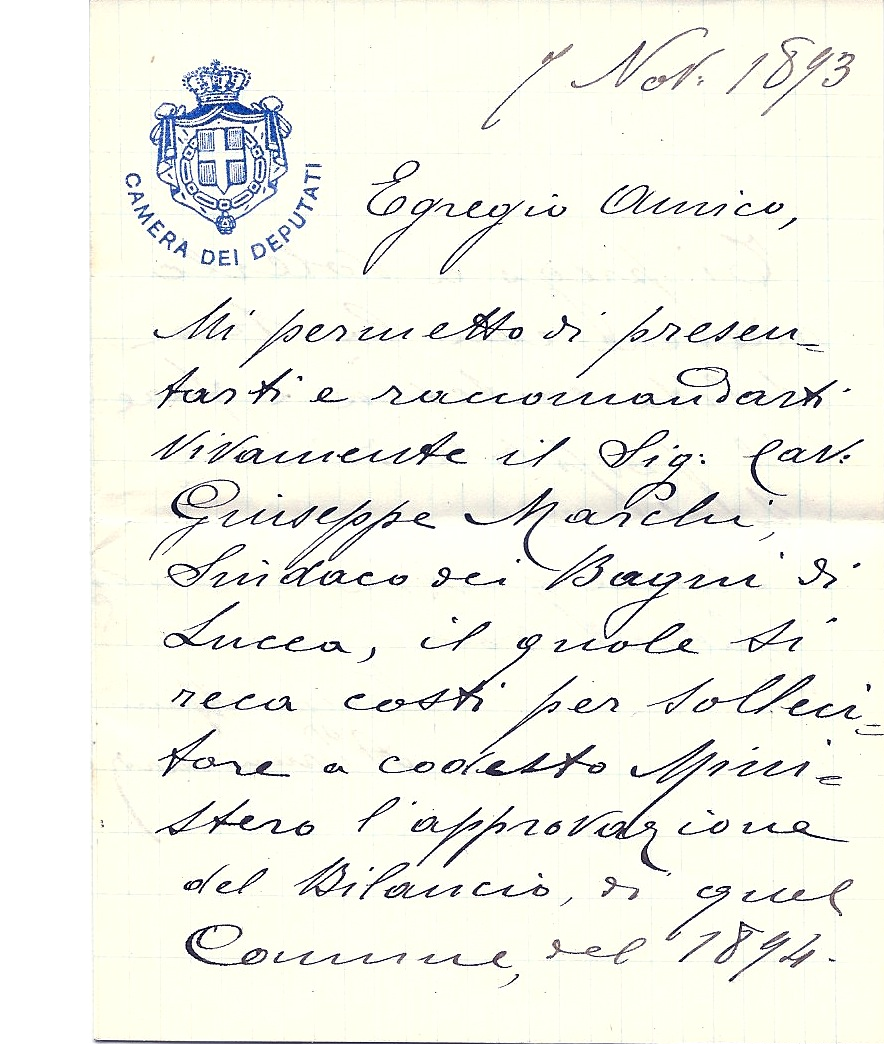 7 Nov. 1893
CAMERA DEI DEPUTATI
Egregio Amico,
Mi permetto di presen=
tarti e raccomandarti
vivamente il Sig: Cav:
Giuseppe Marchi,
Sindaco dei Bagni di
Lucca, il quale si
reca costì per solleci=
tare a codesto Mini=
stero l'approvazione
del Bilancio, di quel
Comune, del 1894.